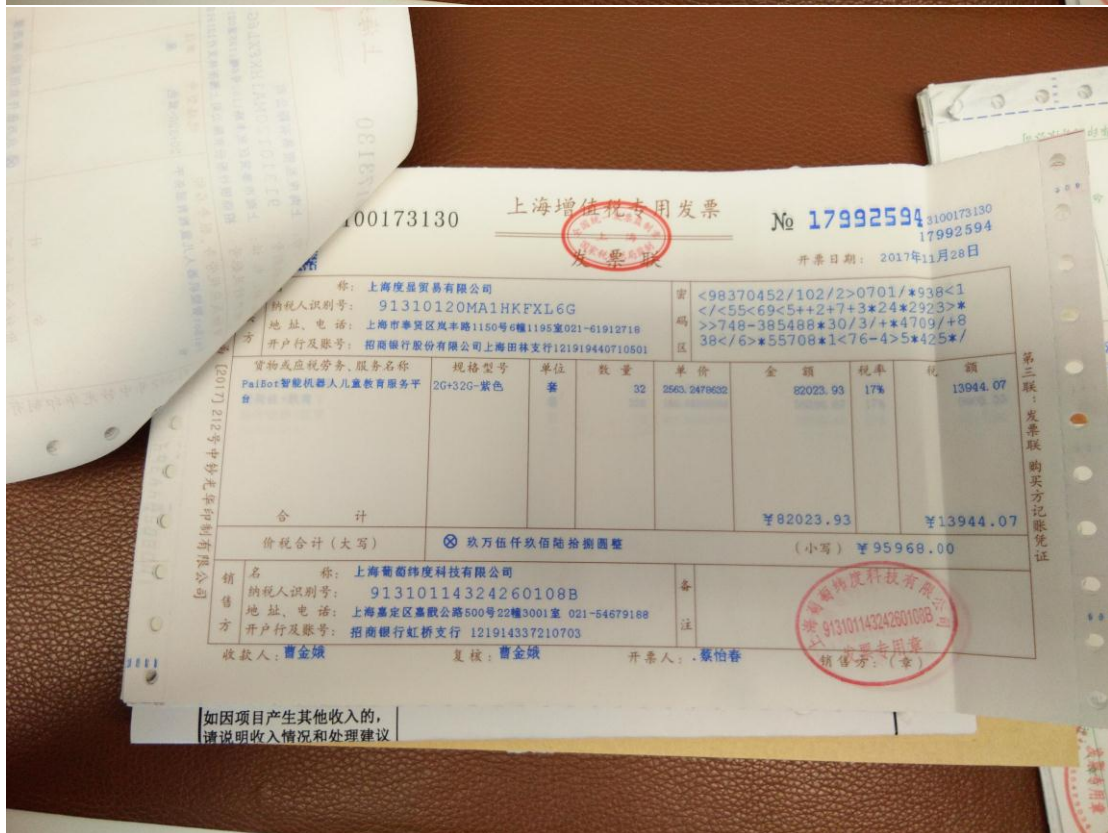 00173130
上海增值税专用发票
发票联
№ 17992594
3100173130
17992594
开票日期: 2017年11月28日
称: 上海度显贸易有限公司
纳税人识别号: 91310120MA1HKFXL6G
地址、电话: 上海市奉贤区岚丰路1150号6幢1195室021-61912718
方 开户行及账号: 招商银行股份有限公司上海田林支行121919440710501
密码区
<98370452/102/2>0701/*938<1
</<55<69<5++2+7+3*24*2923>*
>>748-385488*30/3/+*4709/+8
38</6>*55708*1<76-4>5*425*/
货物或应税劳务、服务名称 规格型号 单位 数量 单价 金额 税率 税额
PaiBot智能机器人儿童教育服务平 2G+32G-紫色 套 32 2563.2478632 82023.93 17% 13944.07
台
合计 ¥82023.93 ¥13944.07
价税合计(大写) ⊗ 玖万伍仟玖佰陆拾捌圆整 (小写) ¥95968.00
销售方
名称: 上海葡萄纬度科技有限公司
纳税人识别号: 91310114324260108B
地址、电话: 上海嘉定区嘉戬公路500号22幢3001室 021-54679188
开户行及账号: 招商银行虹桥支行 121914337210703
备注
收款人: 曹金娥 复核: 曹金娥 开票人: 蔡怡春 销售方:(章)
上海葡萄纬度科技有限公司
91310114324260108B
发票专用章
[2017] 212号中钞光华印制有限公司
第三联:发票联 购买方记账凭证
如因项目产生其他收入的,
请说明收入情况和处理建议
发票专用章